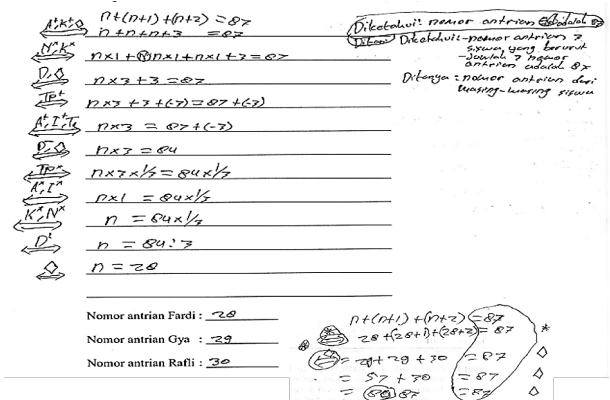 n+(n+1)+(n+2)=87
A⁺K⁺◇ n+n+n+3 =87
N*,K* n×1+n×1+n×1+3=87
D,◇ n×3+3=87
Tp⁺ n×3+3+(-3)=87+(-3)
A⁺,I⁺,Tk n×3 = 87+(-3)
D,◇ n×3 = 84
Tp* n×3×1/3=84×1/3
A*,I* n×1 =84×1/3
K*,N* n =84×1/3
D' n = 84:3
◇ n = 28
Diketahui: nomor antrian
Diketahui:-nomor antrian 3
siswa yang berurut
-Jumlah 3 nomor
antrian adalah 87
Ditanya: nomor antrian dari
masing-masing siswa
Nomor antrian Fardi : 28
Nomor antrian Gya : 29
Nomor antrian Rafli : 30
n+(n+1)+(n+2)=87
28+(28+1)+(28+2)= 87 *
= 28+29+30 =87 ◇
= 57+30 =87 ◇
= 87 =87 ◇